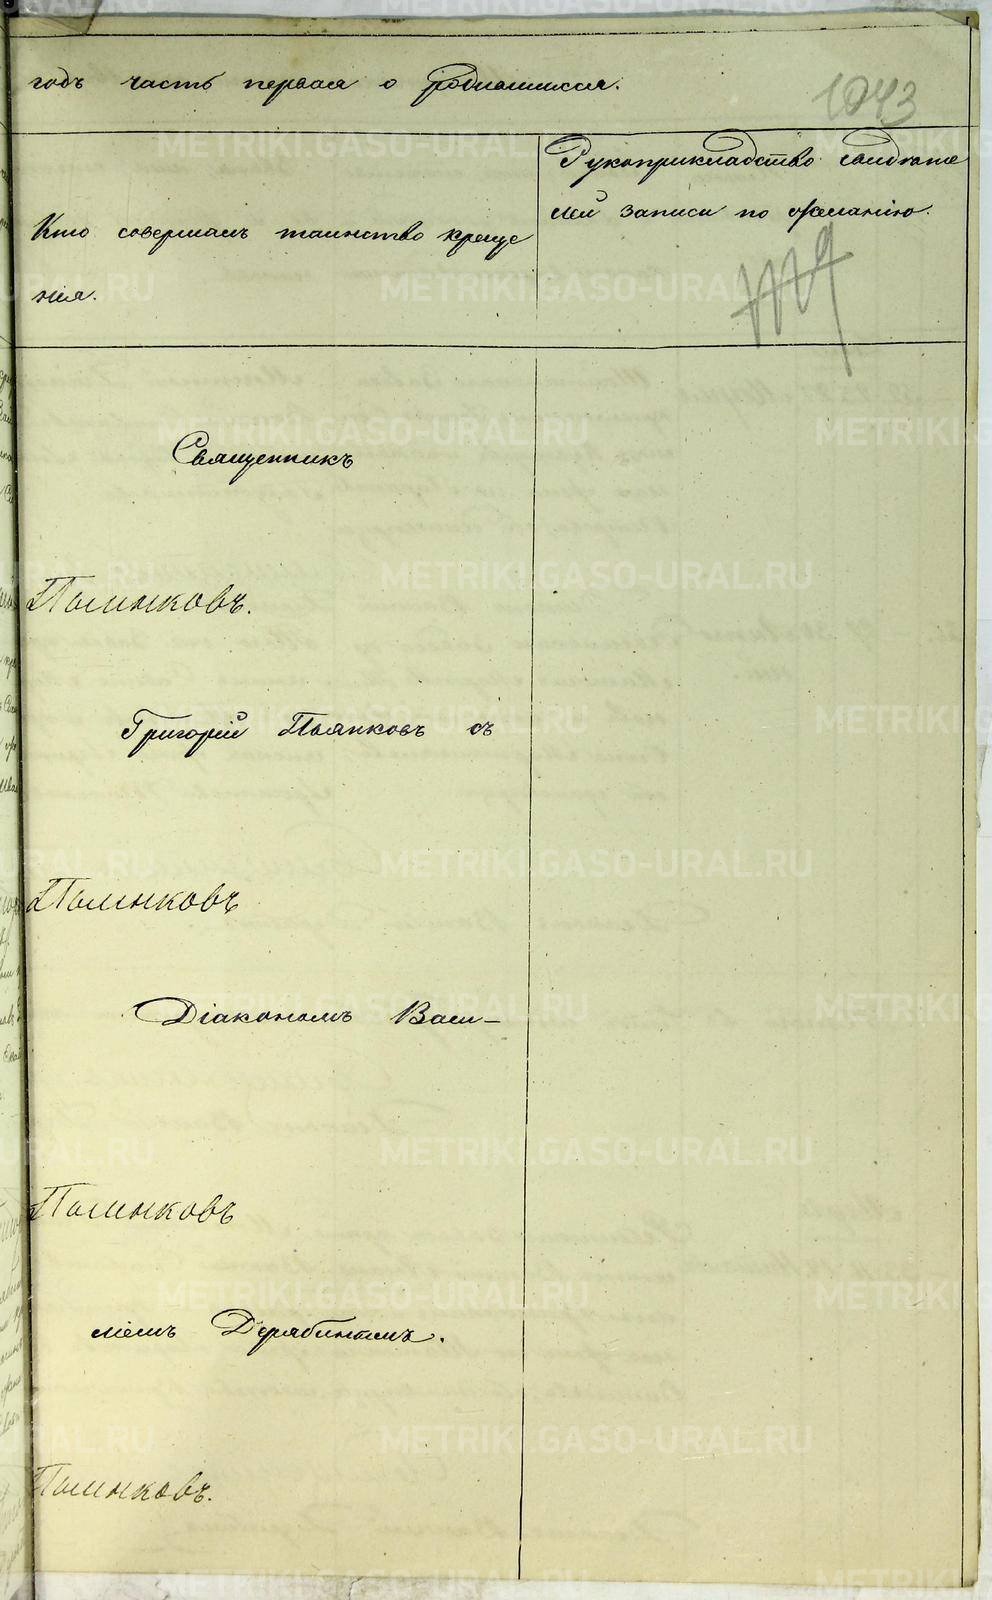 годъ часть первая о родившихся.
1073
Кто совершалъ таинство креще
нія.
Рукоприкладство свидѣте
лей записи по желанію.
Священникъ
Пьянковъ.
Григорій Пьянковъ съ
Пьянковъ
Діакономъ Васи-
Пьянковъ
ліемъ Дерябинымъ.
Пьянковъ.
METRIKI.GASO-URAL.RU